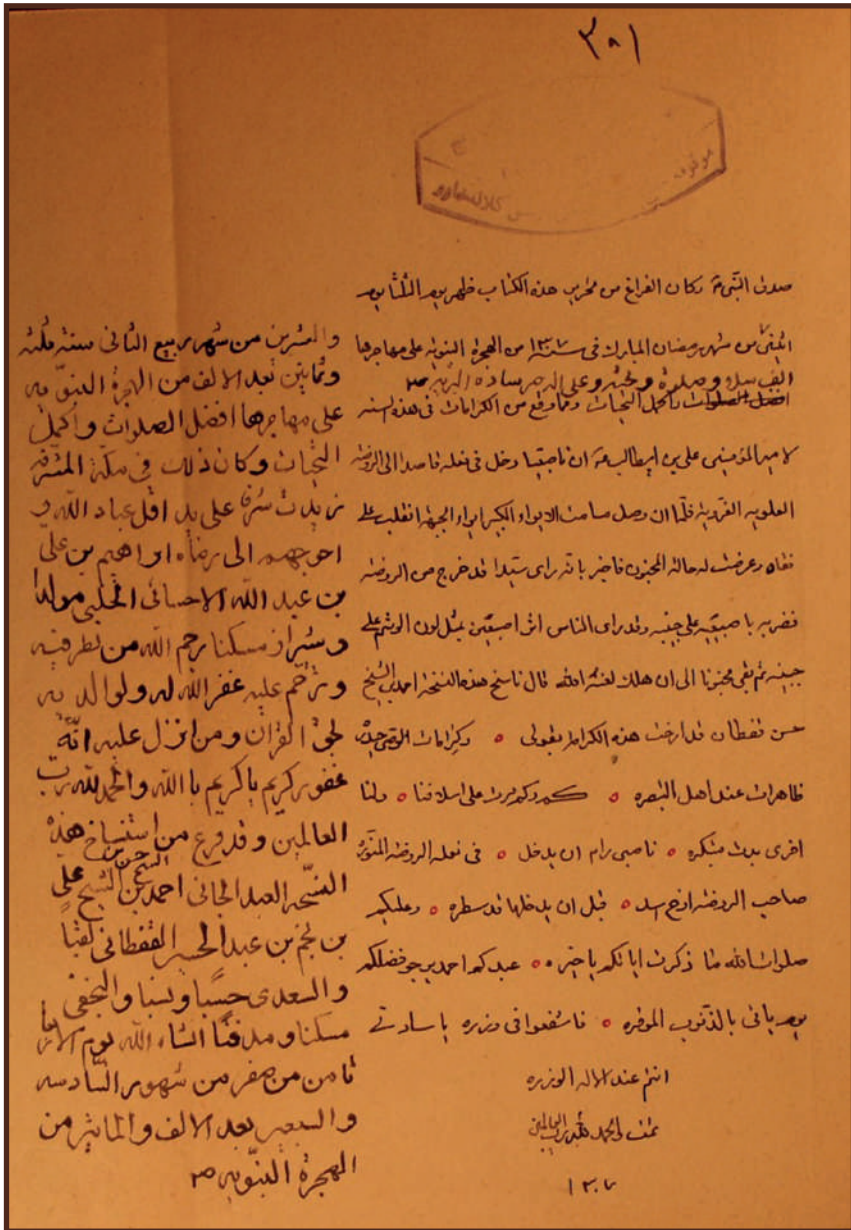 ٣٠١
موقوفه
صدق النية وكان الفراغ من تحرير هذه الكتاب ظهر يوم الثلثا يوم
من شهر رمضان المبارك في سنة ١٣٠٧ من الهجرة النبوية على مهاجرها
الف سلام وصلوة وتحية وعلى اله
افضل الصلوات واكمل التحيات ومما وقع من الكرامات في هذه السنه
لامير المؤمنين علي بن ابيطالب ان ناصبيا دخل في نعله قاصدا الى الروضة
العلويه الغرويه فلما ان وصل الايوان الكبير انقلب على
قفاه وعرضت له حالة المجنون فاخبر بانه راى سيدا قد خرج من الروضه
فضربه باصبعيه على جبينه وقد راى الناس اثر اصبعين بمثل لون الوشم على
جبينه ثم بقى مجنونا الى ان هلك لعنه الله قال ناسخ هذه النسخة احمد بن الشيخ
حسن قفطان قد ارخت هذه الكرامه بقولي ° وكرامات الوصي حيدره
ظاهرات عند اهل التبصره ° كم وكم مرت على اسلافنا ° ولنا
اخرى بدت مبتكره ° ناصبي رام ان يدخل ° في نعله الروضة المنوره
صاحب الروضة ارخ اسد ° قبل ان يدخلها قد سطره ° وعليكم
صلوات الله ما ذكرت اياتكم يا خيره ° عبدكم احمد يرجو فضلكم
يوم ياتي بالذنوب الموقره ° فاشفعوا في وزره يا سادتي
انتم عند الاله الوزره
تمت والحمد لله رب العالمين
١٣٠٧
والعشرين من شهر ربيع الثاني سنة ثلثه
وثمانين بعد الالف من الهجرة النبويه
على مهاجرها افضل الصلوات واكمل
التحيات وكان ذلك في مكة المشرفة
زيدت شرفا على يد اقل عباد الله و
احوجهم الى رضاه ابراهيم بن علي
بن عبد الله الاحسائي مولدا
وشيراز مسكنا رحم الله من نظر فيه
وترحم عليه غفر الله له ولوالديه
بحق القران ومن انزل عليه انه
غفور كريم يا كريم يا الله والحمد لله رب
العالمين وقد فرغ من استنساخ هذه
النسخه العبد الجاني احمد بن الشيخ حسن بن الشيخ علي
بن نجم بن عبد الحسين القفطاني لقبا
والسعدي حسبا ونسبا والنجفي
مسكنا ومدفنا انشاء الله يوم
ثامن من صفر من شهور السادسه
والسبعين بعد الالف والماتين من
الهجرة النبويه